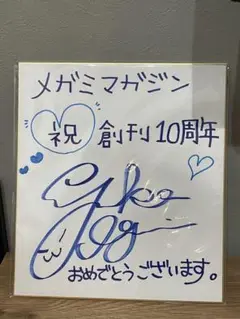 メガミマガジン
祝 創刊10周年
おめでとうございます。